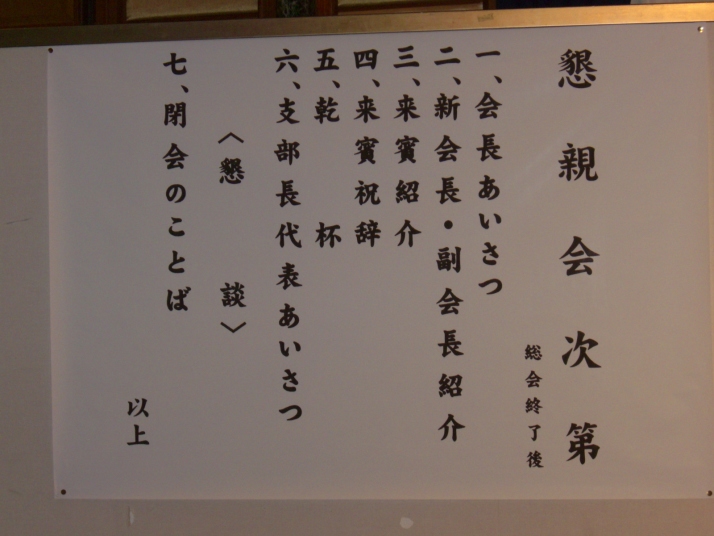 懇親会次第
総会終了後
一、会長あいさつ
二、新会長・副会長紹介
三、来賓紹介
四、来賓祝辞
五、乾杯
六、支部長代表あいさつ
〈懇談〉
七、閉会のことば
以上